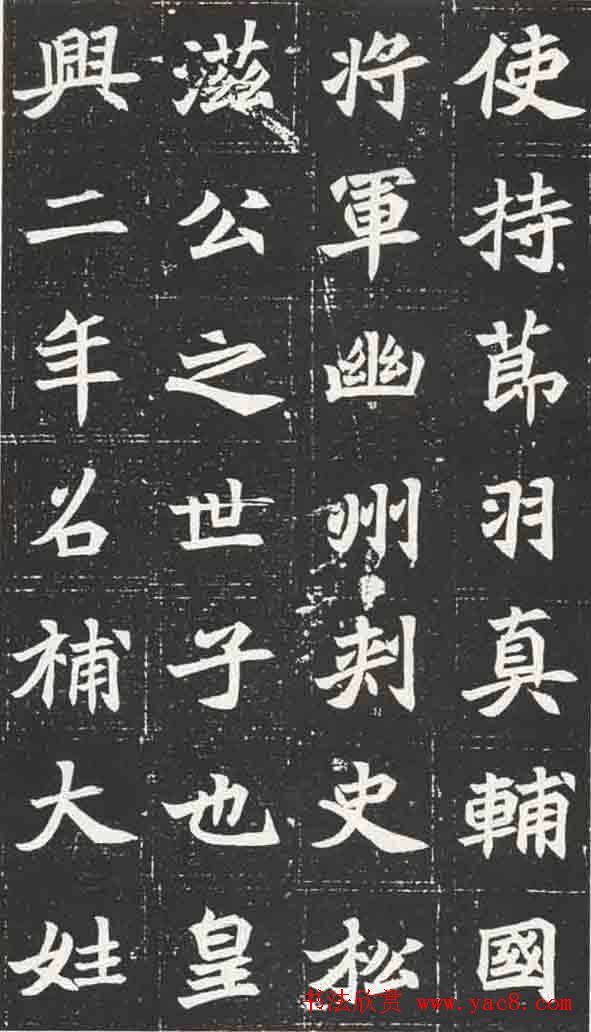 使持節羽真輔國
将軍幽州刺史松
滋公之世子也皇
興二年召補大姓
书法欣赏 www.yac8.com